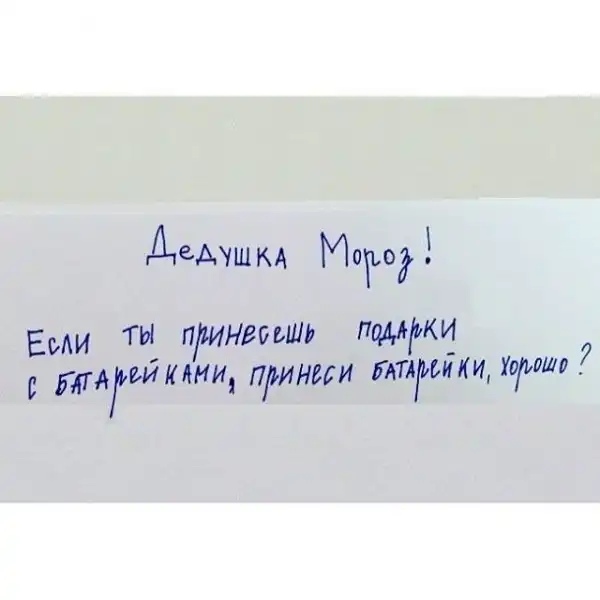 Дедушка Мороз!
Если ты принесешь подарки
с батарейками, принеси батарейки, хорошо?